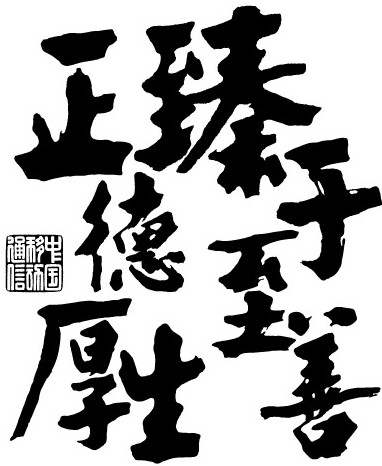 正德厚生
臻于至善
中国移动通信